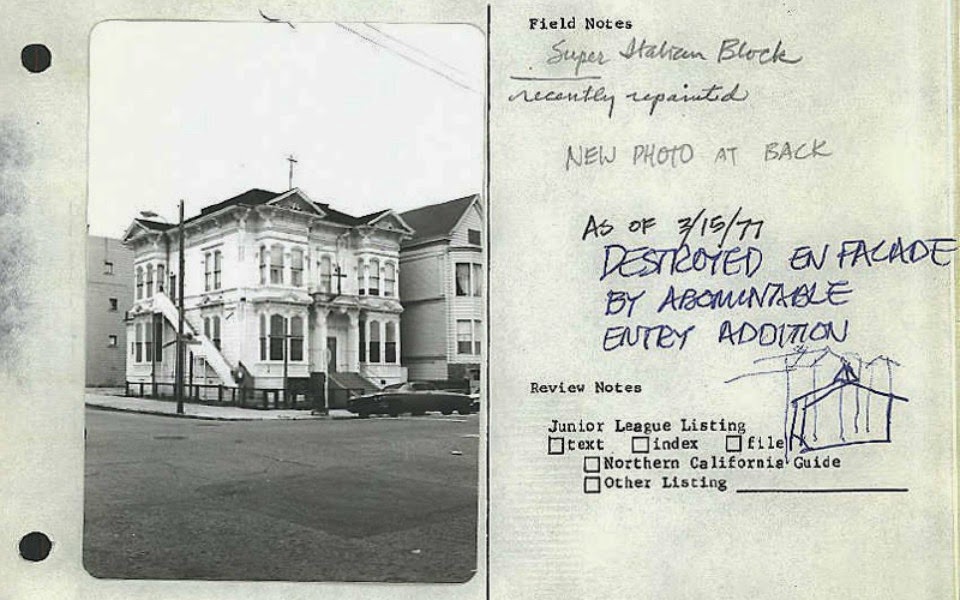 Field Notes
Super Italian Block
recently repainted
NEW PHOTO AT BACK
AS OF 3/15/77
DESTROYED EN FACADE
BY ABOMINABLE
ENTRY ADDITION
Review Notes
Junior League Listing
text index file
Northern California Guide
Other Listing